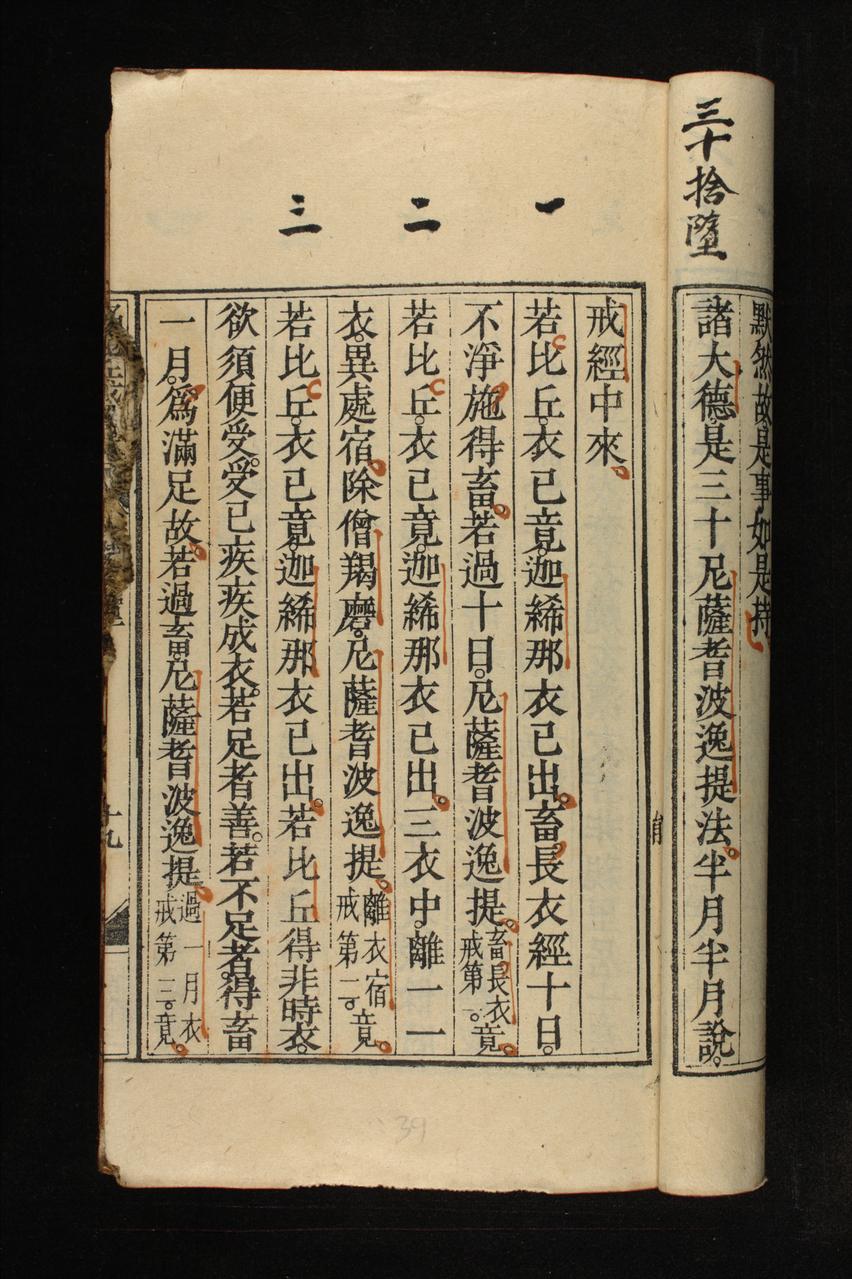 三十捨墮
默然故是事如是持
諸大德是三十尼薩耆波逸提法半月半月說
戒經中來
一
若比丘衣已竟迦絺那衣已出畜長衣經十日
不淨施得畜若過十日尼薩耆波逸提畜長衣戒第一竟
二
若比丘衣已竟迦絺那衣已出三衣中離一一
衣異處宿除僧羯磨尼薩耆波逸提離衣宿戒第二竟
三
若比丘衣已竟迦絺那衣已出若比丘得非時衣
欲須便受受已疾疾成衣若足者善若不足者得畜
一月爲滿足故若過畜尼薩耆波逸提過一月衣戒第三竟
十九
39